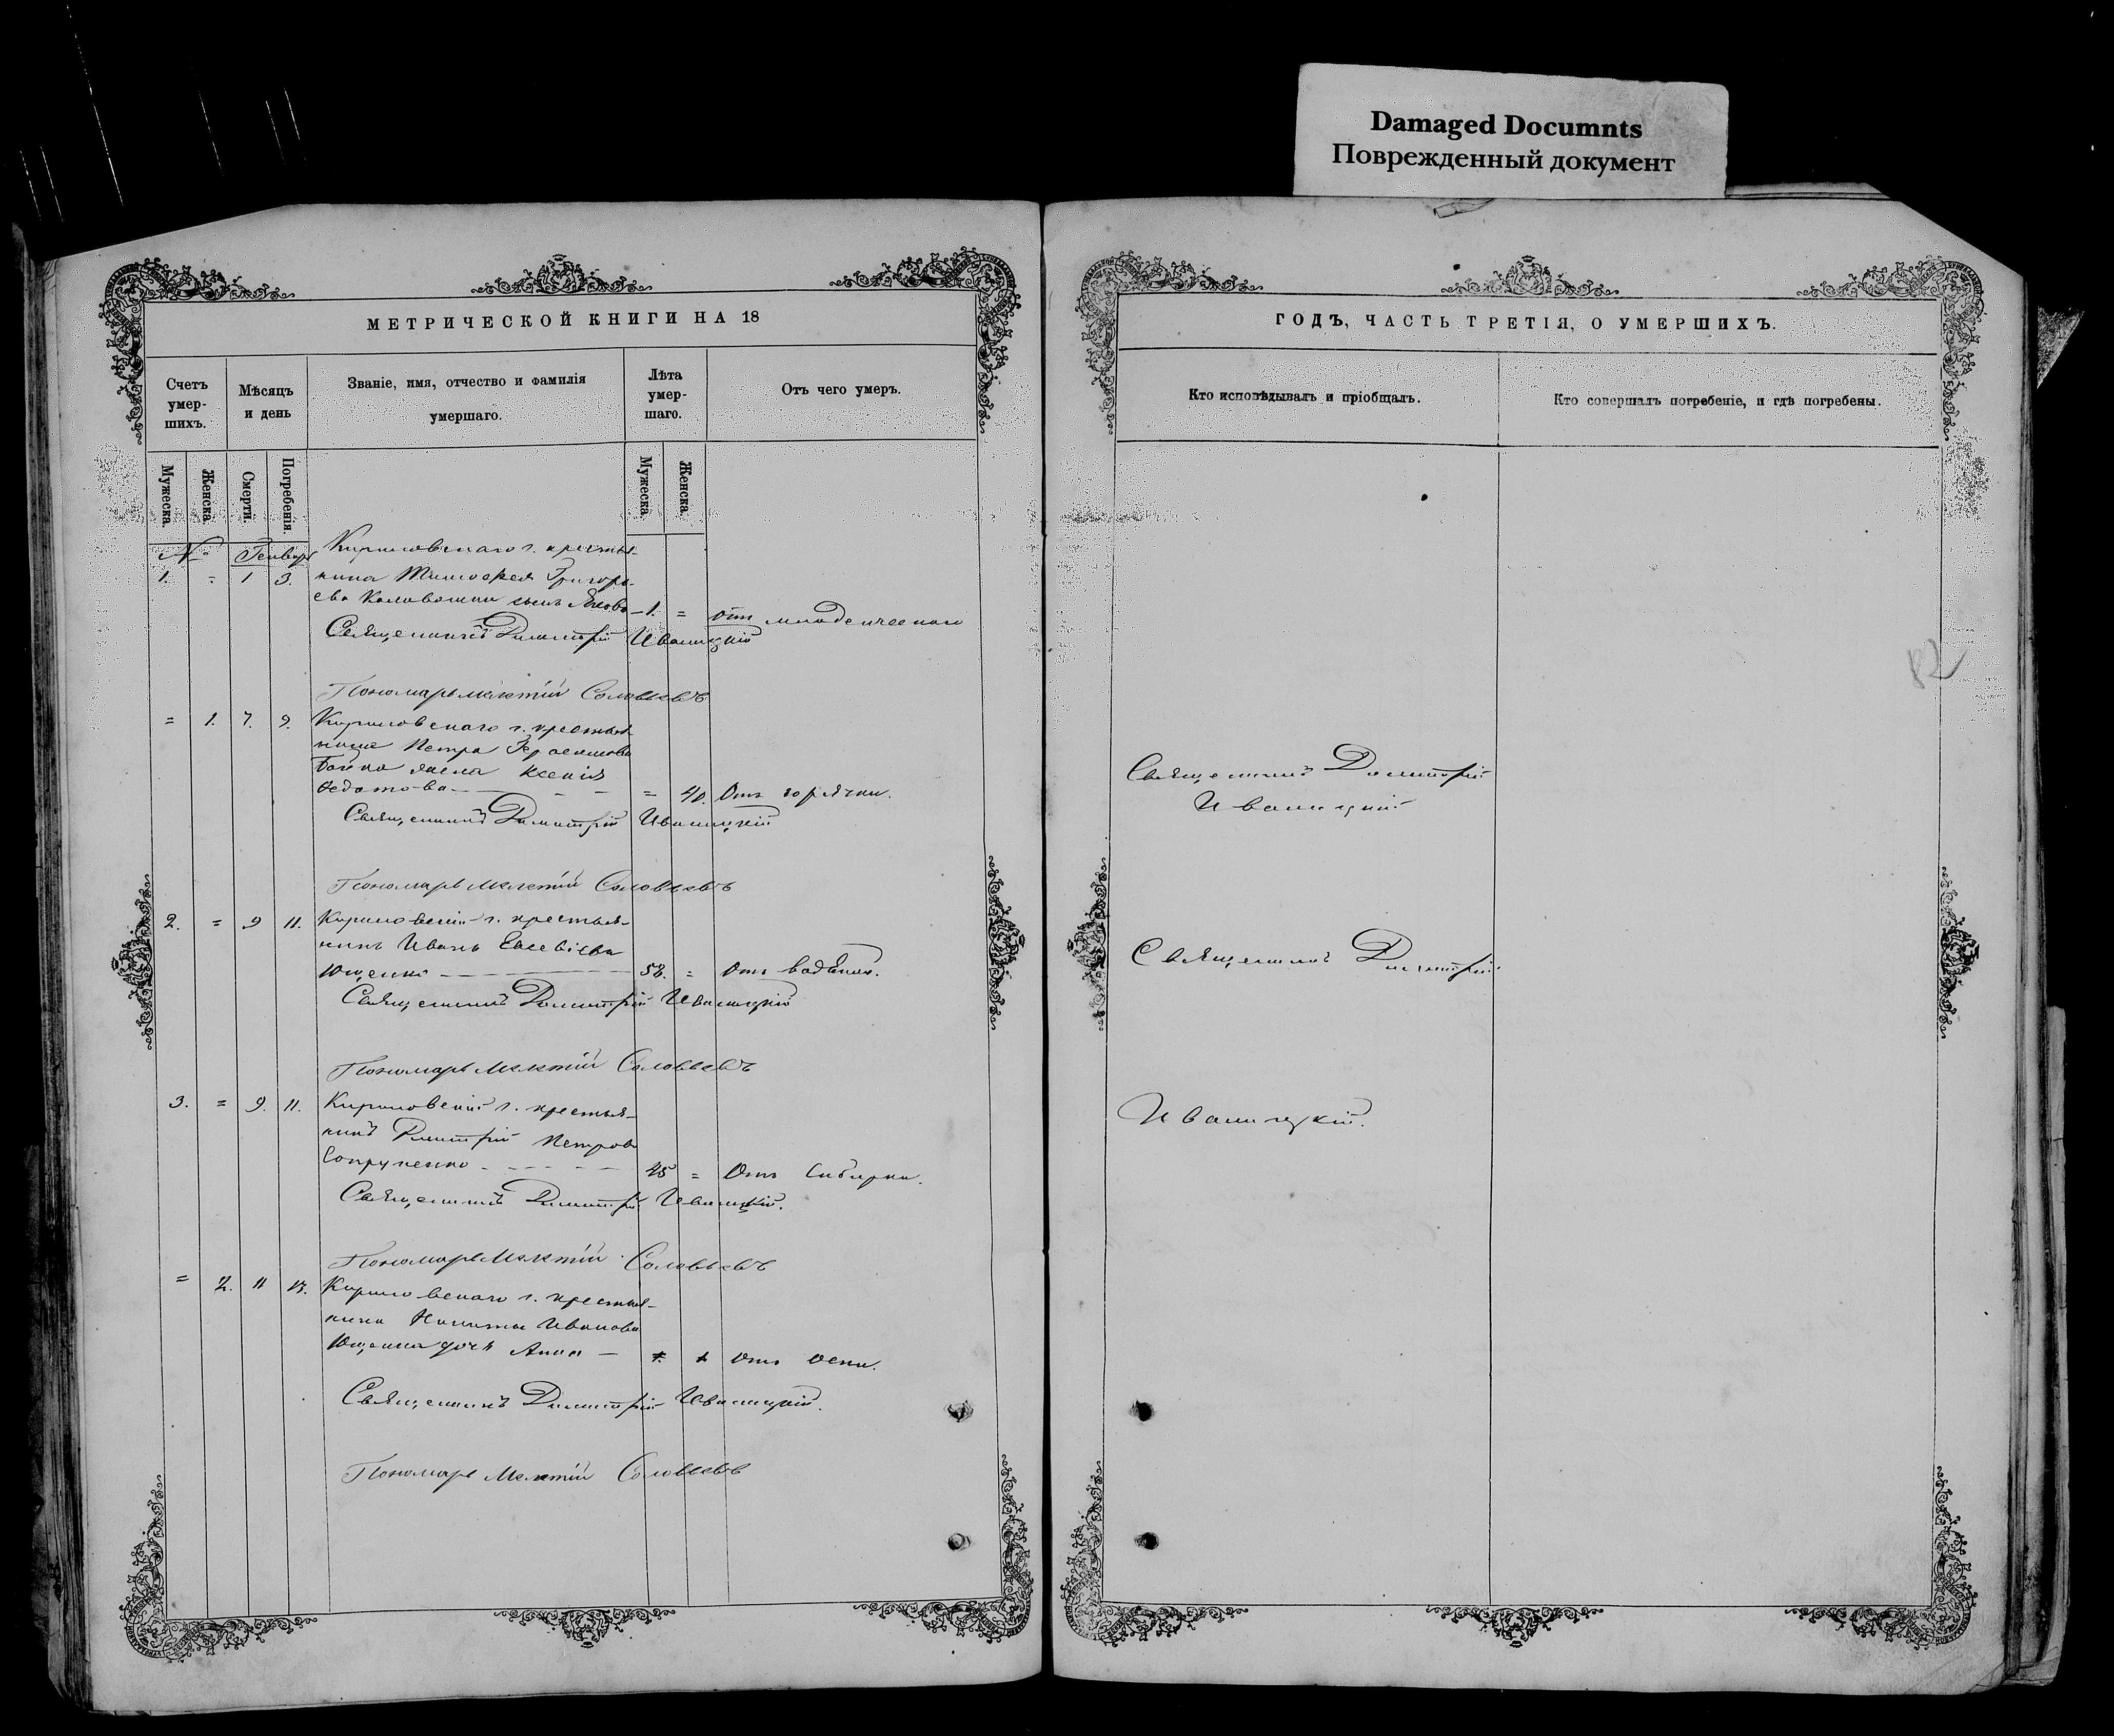 Damaged Documnts
Поврежденный документ
МЕТРИЧЕСКОЙ КНИГИ НА 18
Счетъ умер- шихъ.
Мѣсяцъ и день
Званіе, имя, отчество и фамилія умершаго.
Лѣта умер- шаго.
Отъ чего умеръ.
Мужеска.
Женска.
Смерти.
Погребенія.
Мужеска.
Женска.
№ Генварь Кириловскаго г. крестья-
1. = 1 3. нина Тимофея Григорь-
ева сынъ Яковъ — 1. = отъ младенческаго
Священникъ Димитрій Иваницкій
Пономарь Мелетій Соловьевъ
= 1. 7. 9. Кириловскаго г. крестья
нина Петра Герасимова
Бойка жена Ксенія
Федотова — = 40. Отъ горячки.
Священникъ Димитрій Иваницкій
Пономарь Мелетій Соловьевъ
2. = 9 11. Кириловскій г. крестья-
нинъ Иванъ Евсевіевъ
Ющенко — 58. = Отъ водянки.
Священникъ Димитрій Иваницкій
Пономарь Мелетій Соловьевъ
3. = 9. 11. Кириловскій г. крестья-
нинъ Димитрій Петровъ
Сопруненко — 45 = Отъ Сибирки.
Священникъ Димитрій Иваницкій.
Пономарь Мелетій Соловьевъ
= 2. 11 13. Кириловскаго г. крестья-
нина Никиты Иванова
Ющенка дочь Анна — Отъ оспы.
Священникъ Димитрій Иваницкій.
Пономарь Мелетій Соловьевъ
ГОДЪ, ЧАСТЬ ТРЕТІЯ, О УМЕРШИХЪ.
Кто исповѣдывалъ и пріобщалъ.
Кто совершалъ погребеніе, и гдѣ погребены.
82
Священникъ Димитрій
Иваницкій
Священникъ Димитрій
Иваницкій.